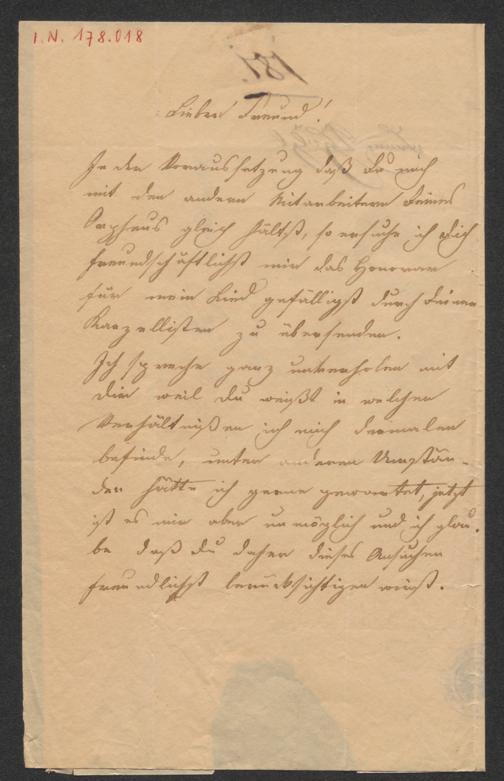 I.N. 178.018
181.
Lieber Freund!
In der Voraussetzung daß Du mich
mit den andern Mitarbeitern Deines
Orpheus gleich hältst, so ersuche ich Dich
freundschäftlichst mir das Honorar
für mein Lied gefälligst durch Deinen
Kanzellisten zu übersenden.
Ich spreche ganz unverholen mit
Dir weil Du weißt in welchen
Verhältnißen ich mich dermalen
befinde, unter anderen Umstän-
den hätte ich gerne gewartet, jetzt
ist es mir aber unmöglich und ich glau-
be daß du daher dieses Ansuchen
freundlichst berücksichtigen wirst.